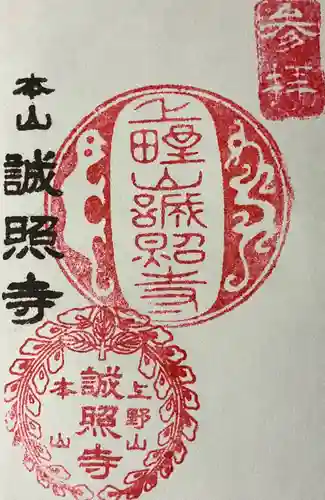 参拝
上野山誠照寺
本山誠照寺
上野山
誠照寺
本山